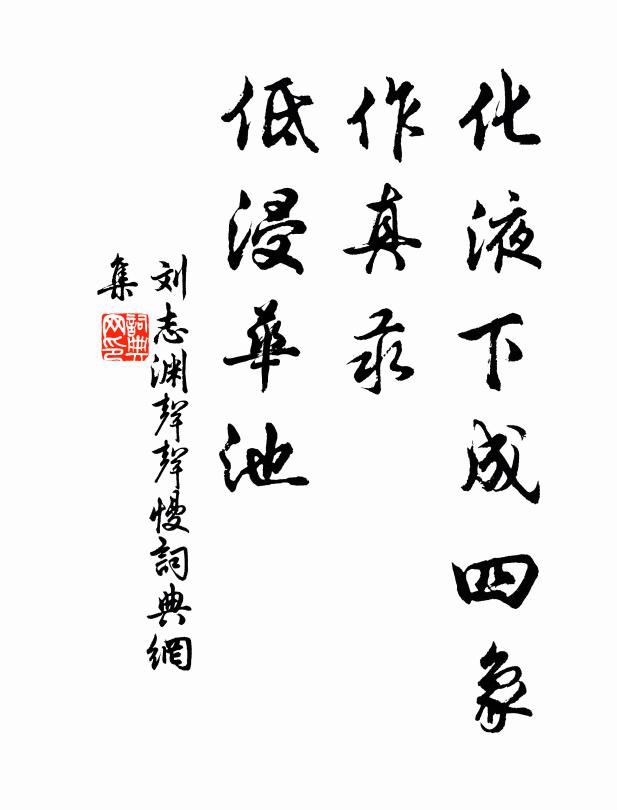 化液下成四象
作真汞
低浸華池
刘志渊聲聲慢詞典網
集
詞典網印